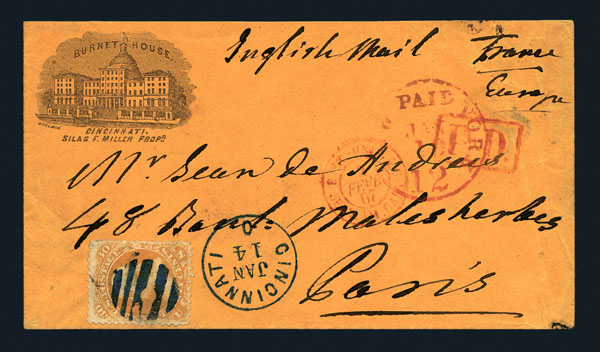 BURNET HOUSE.
CINCINNATI.
SILAS F. MILLER PROPR.
English Mail France
Europe
PAID
JAN
12
P.D.
Mr. Jean de Andreis
48 Boul. Malesherbes
Paris
CINCINNATI O.
JAN
14
30